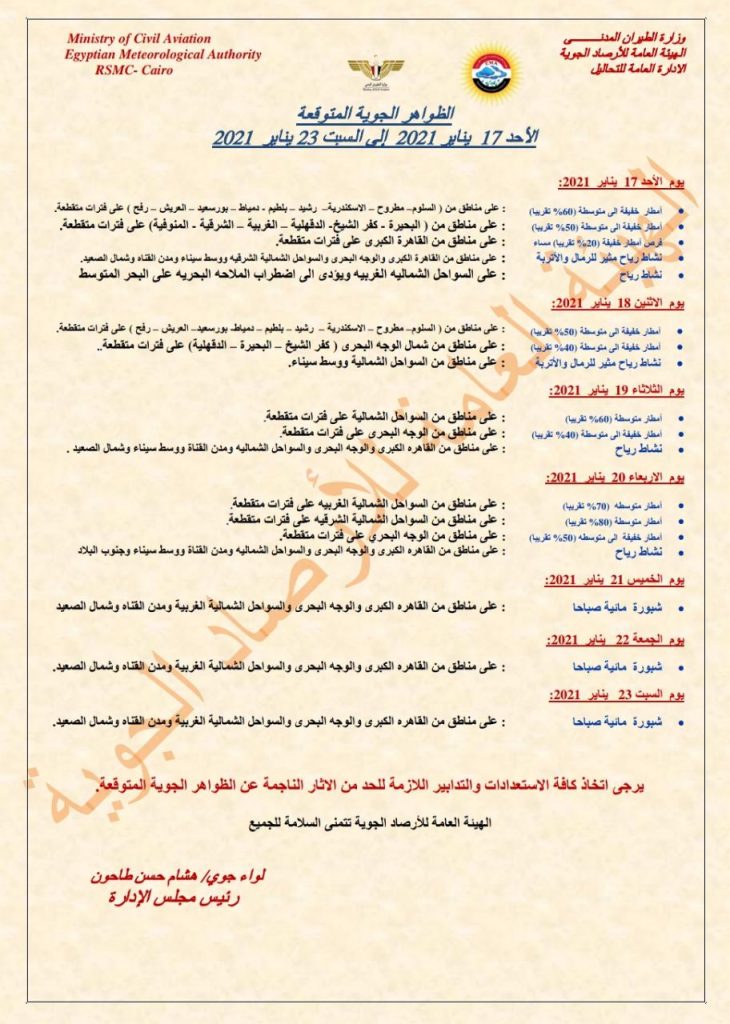 Ministry of Civil Aviation
Egyptian Meteorological Authority
RSMC- Cairo
وزارة الطيران المدنـــــى
الهيئة العامة للأرصاد الجوية
الادارة العامة للتحاليل
الظواهر الجوية المتوقعة
الأحد 17 يناير 2021 إلى السبت 23 يناير 2021
يوم الأحد 17 يناير 2021:
• أمطار خفيفة الى متوسطة (60% تقريبا) : على مناطق من ( السلوم– مطروح – الاسكندرية– رشيد – بلطيم - دمياط – بورسعيد – العريش – رفح ) على فترات متقطعة.
• أمطار خفيفة الى متوسطة (50% تقريبا) : على مناطق من ( البحيرة - كفر الشيخ- الدقهلية – الغربية – الشرقية - المنوفية) على فترات متقطعة.
• فرص أمطار خفيفة (20% تقريبا) مساء : على مناطق من القاهرة الكبرى على فترات متقطعة.
• نشاط رياح مثير للرمال والأتربة : على مناطق من القاهرة الكبرى والوجه البحرى والسواحل الشمالية الشرقيه ووسط سيناء ومدن القناه وشمال الصعيد.
• نشاط رياح : على السواحل الشماليه الغربيه ويؤدى الى اضطراب الملاحه البحريه على البحر المتوسط
يوم الاثنين 18 يناير 2021:
• أمطار خفيفة الى متوسطة (50% تقريبا) : على مناطق من ( السلوم– مطروح – الاسكندرية– رشيد – بلطيم – دمياط- بورسعيد– العريش – رفح ) على فترات متقطعة.
• أمطار خفيفة الى متوسطة (40% تقريبا) : على مناطق من شمال الوجه البحرى ( كفر الشيخ – البحيرة – الدقهلية) على فترات متقطعة..
• نشاط رياح مثير للرمال والأتربة : على مناطق من السواحل الشمالية ووسط سيناء.
يوم الثلاثاء 19 يناير 2021:
• أمطار متوسطة (60% تقريبا) : على مناطق من السواحل الشمالية على فترات متقطعة.
• أمطار خفيفة الى متوسطة (40% تقريبا) : على مناطق من الوجه البحرى على فترات متقطعة.
• نشاط رياح : على مناطق من القاهره الكبرى والوجه البحرى والسواحل الشماليه ومدن القناة ووسط سيناء وشمال الصعيد .
يوم الاربعاء 20 يناير 2021:
• أمطار متوسطه (70% تقريبا) : على مناطق من السواحل الشمالية الغربيه على فترات متقطعة.
• أمطار متوسطة (80% تقريبا) : على مناطق من السواحل الشمالية الشرقيه على فترات متقطعة.
• أمطار خفيفة الى متوسطه (50% تقريبا) : على مناطق من الوجه البحرى على فترات متقطعة.
• نشاط رياح : على مناطق من القاهره الكبرى والوجه البحرى والسواحل الشماليه ومدن القناة ووسط سيناء وجنوب البلاد
يوم الخميس 21 يناير 2021:
• شبورة مائية صباحا : على مناطق من القاهره الكبرى والوجه البحرى والسواحل الشمالية الغربية ومدن القناه وشمال الصعيد
يوم الجمعة 22 يناير 2021:
• شبورة مائية صباحا : على مناطق من القاهره الكبرى والوجه البحرى والسواحل الشمالية الغربية ومدن القناه وشمال الصعيد.
يوم السبت 23 يناير 2021:
• شبورة مائية صباحا : على مناطق من القاهره الكبرى والوجه البحرى والسواحل الشمالية الغربية ومدن القناه وشمال الصعيد.
يرجى اتخاذ كافة الاستعدادات والتدابير اللازمة للحد من الاثار الناجمة عن الظواهر الجوية المتوقعة.
الهيئة العامة للأرصاد الجوية تتمنى السلامة للجميع
لواء جوي/ هشام حسن طاحون
رئيس مجلس الإدارة
الهيئة العامة للأرصاد الجوية